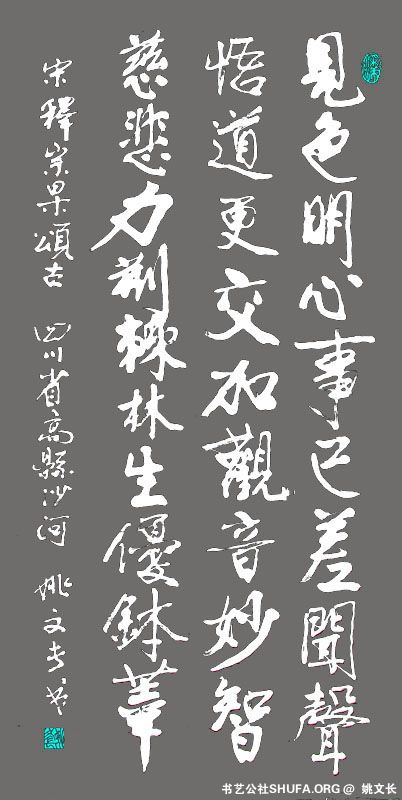 見色明心事已差聞聲
悟道更交加觀音妙智
慈悲力荊棘林生優鉢華
宋釋崇杲頌古 四川省高縣沙河 姚文長书
书艺公社SHUFA.ORG @ 姚文长